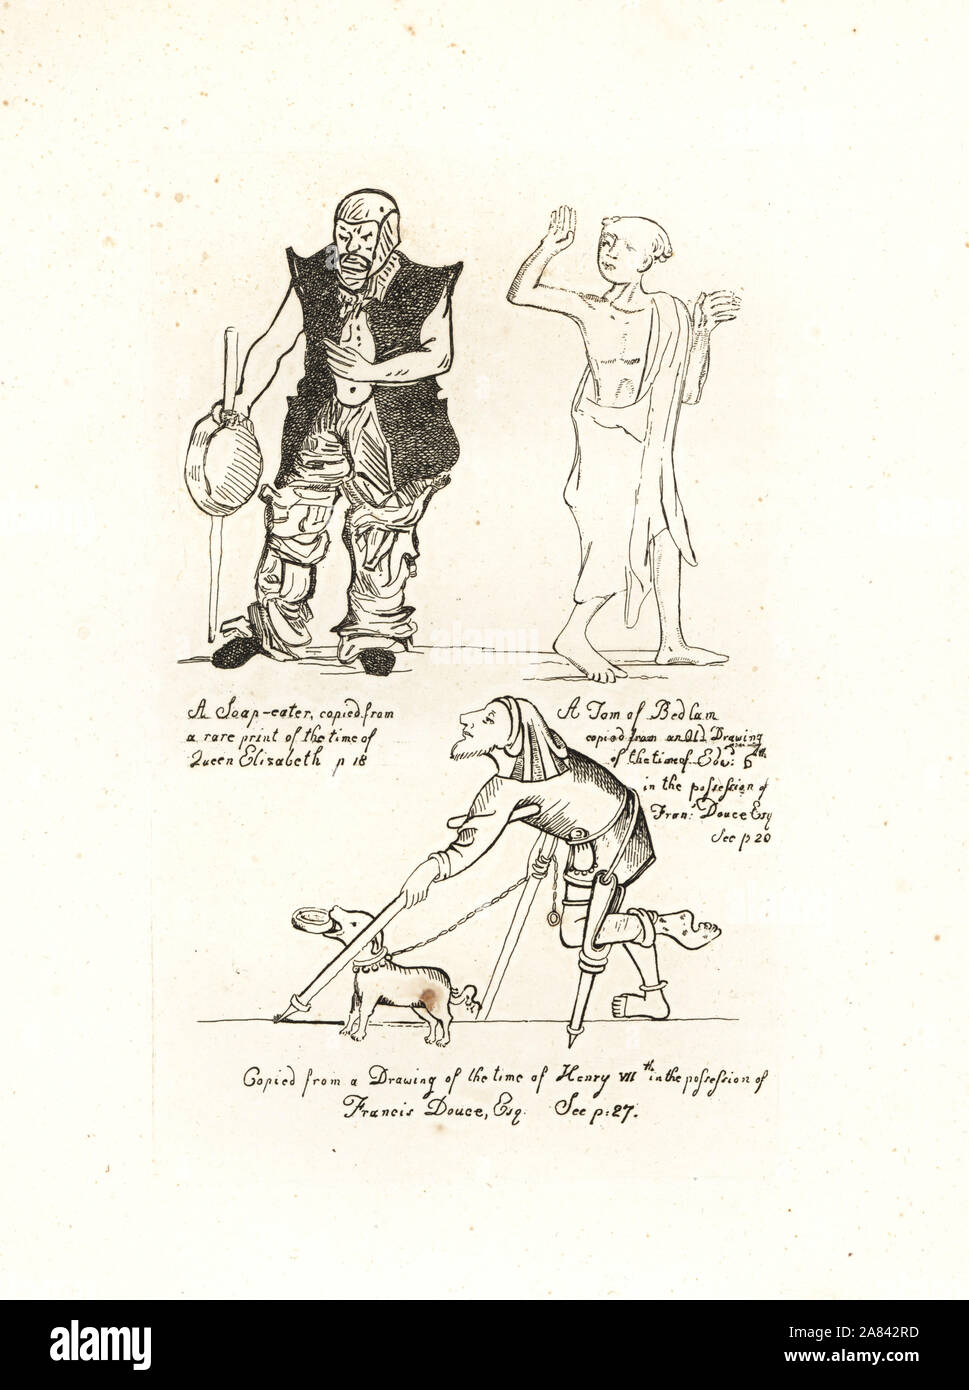 A Soap-eater, copied from
a rare print of the time of
Queen Elizabeth p 18
A Tom of Bedlam
copied from an Old Drawing
of the time of Edwd: 6th
in the possession of
Frans: Douce Esq
See p 20
Copied from a Drawing of the time of Henry VIIth in the possession of
Francis Douce, Esq. See p: 27.
alamy
alamy
Image ID: 2A842RD
www.alamy.com